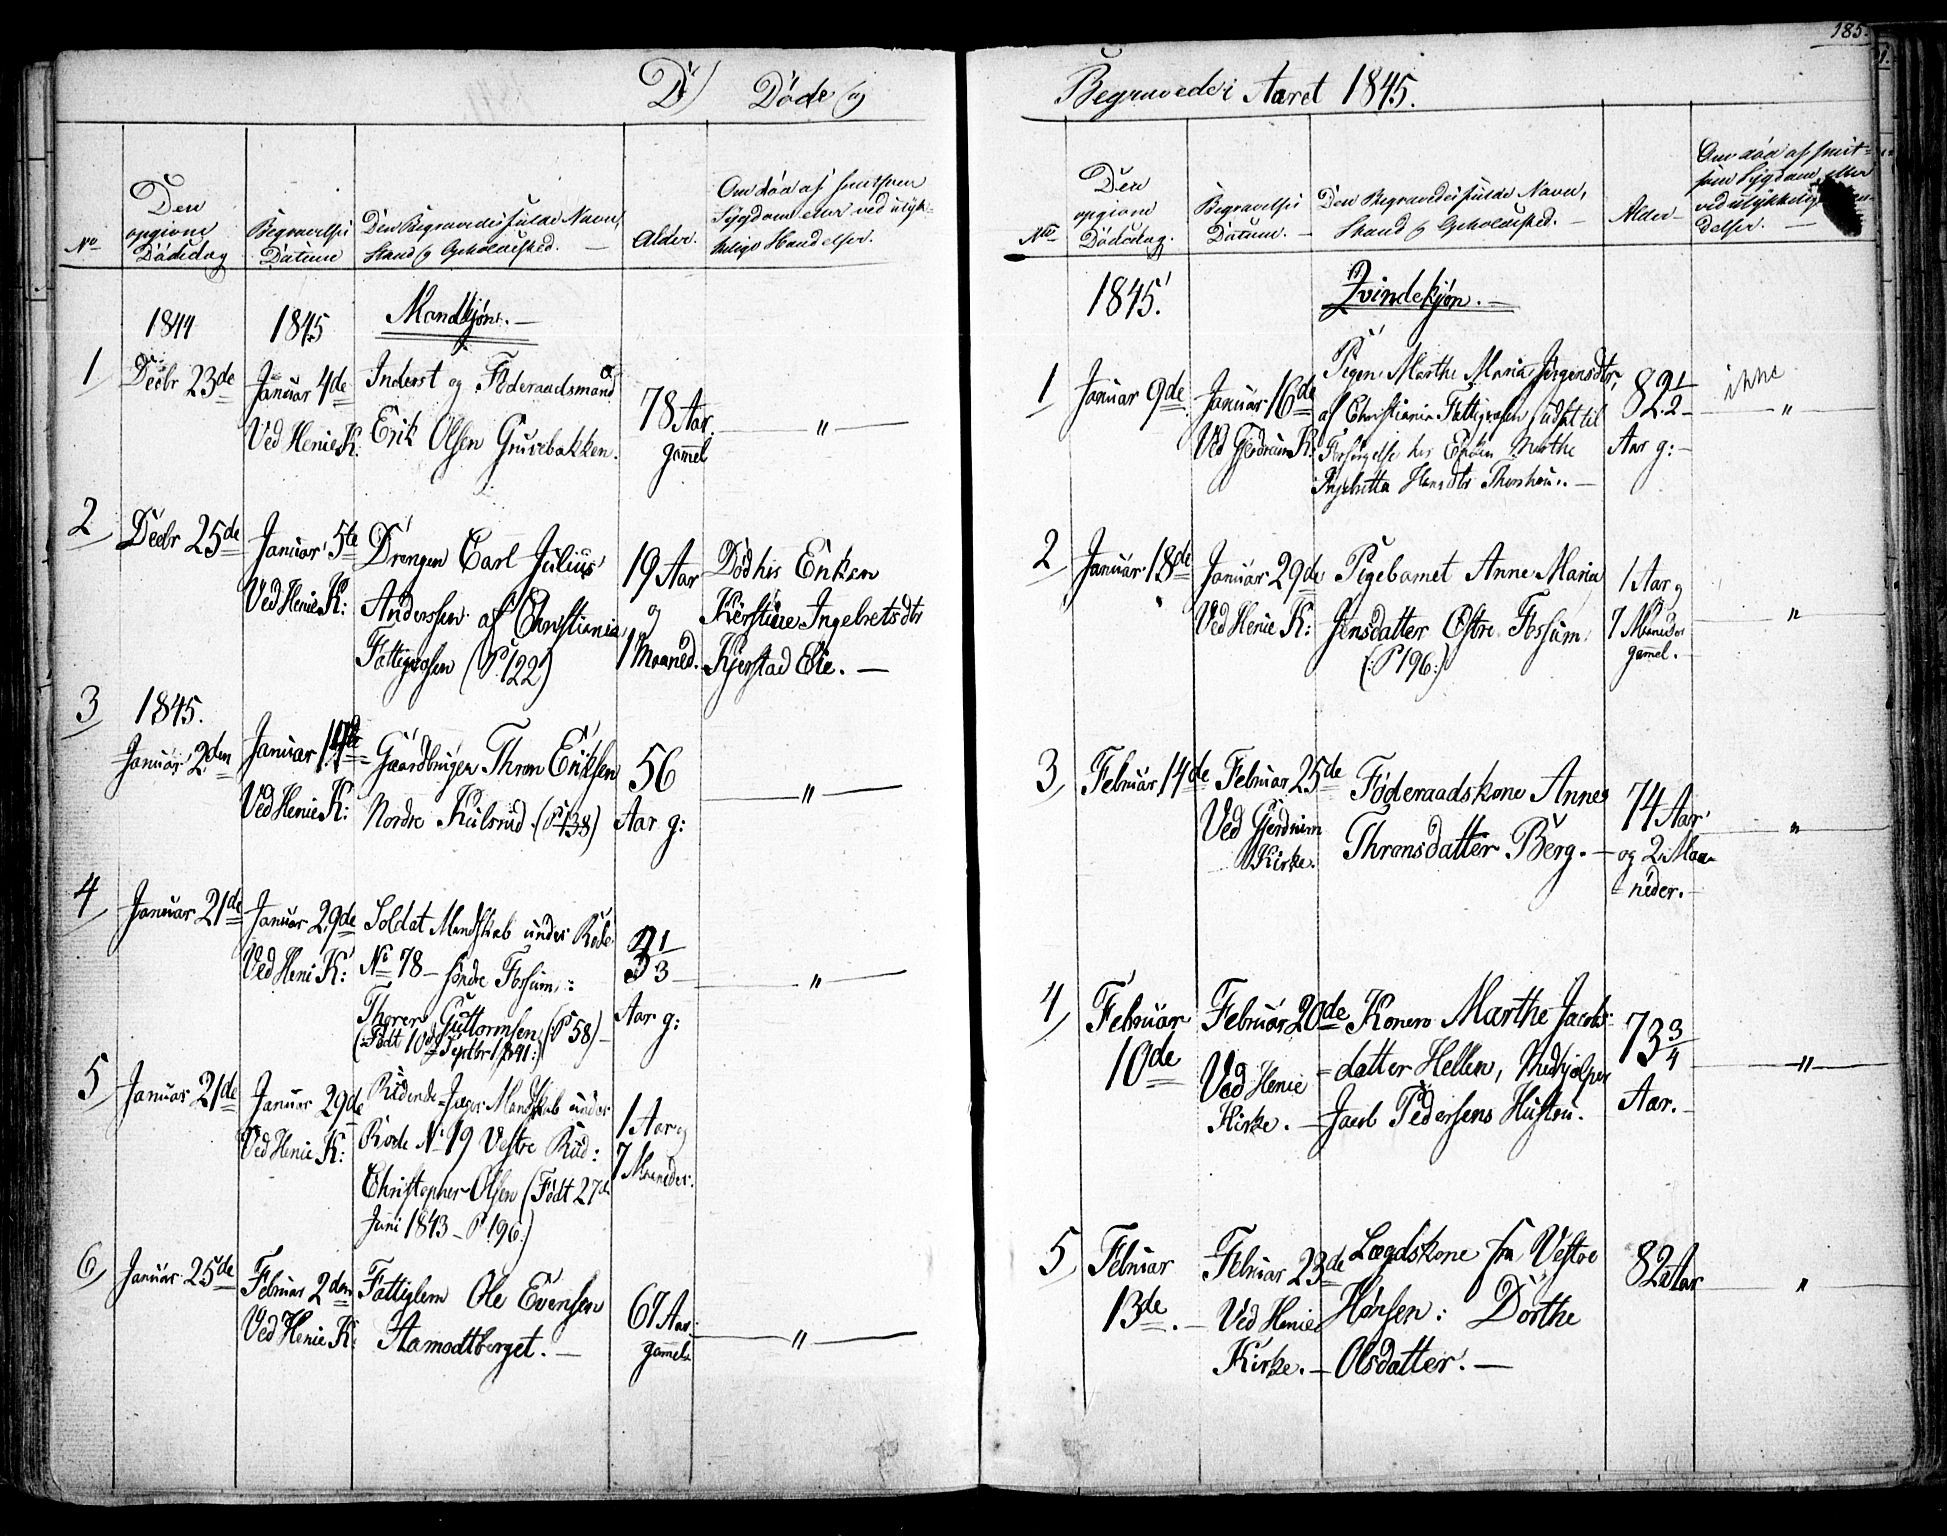 185.
D) Døde og
Begravede i Aaret 1845.
No
Den opgivne Dødsdag
Begravelses Datum
Den Begravedes fulde Navn, Stand og Opholdssted. —
Alder.
Om død af smitsom Sygdom eller ved ulykkelige Hændelser.
1844
1845
Mandkjøn. —
1
Decbr 23de
Januar 4de
Ved Henie K:
Inderst og Føderaadsmand
Erik Olsen Grusebakken.
78 Aar.
gamel
"
2
Decbr 25de
Januar 5te
Ved Henie K:
Drengen Carl Julius
Anderssen af Christiania
Fattigvæsen (P. 122)
19 Aar
og
1 Maaned.
Død hos Enken
Kirstine Ingebretsdtr
Kjerstad Eie. —
3
1845.
Januar 2den
Januar 14de
Ved Henie K:
Gaardbruger Thron Eriksen
Nordre Kulsrud (P 138)
56
Aar g:
"
4
Januar 21de
Januar 29de
Ved Heni K:
Soldat Mandskab under Rode
No 78 — søndre Fossum:
Thorer Guttormsen (P 58) —
(:Født 10de Septbr 1841:)
3 1/3
Aar g:
"
5
Januar 21de
Januar 29de
Ved Henie K:
Ridende-Jæger Mandskab under
Rode No 19 Vestre Rud:
Christopher Olsen (Født 27de
Juni 1843 — P. 196.)
1 Aar og
7 Maaneder.
6
Januar 25de
Februar 2den
Ved Henie K:
Fattiglem Ole Evensen
Aamodtberget. —
67 Aar
gamel
"
No
Den opgivne Dødsdag.
Begravelses Datum. —
Den Begravedes fulde Navn, Stand og Opholdssted. —
Alder
Om død af smitsom Sygdom eller ved ulykkelige Hændelser. —
1845.
Qvindekjøn. —
1
Januar 9de
Januar 16de
Ved Gjerdrum K:
Pigen Marthe Maria Jørgensdtr,
af Christiania Fattigvæsen udsat til
Forsørgelse hos Enken Marthe
Ingebretta Hansdtr —
82 1/2
Aar g: —
ikke
"
2
Januar 18de
Januar 29de
Ved Henie K:
Pigebarnet Anne Maria
Jensdatter Østre Fossum.
(: P 196:)
1 Aar og
7 Maaneder
gamel.
"
3
Februar 14de
Februar 25de
Ved Gjerdrum
Kirke.
Føderaadskone Anne
Thronsdatter Berg. —
74 Aar
og 2 Maa-
neder.
"
4
Februar
10de
Februar 20de
Ved Henie
Kirke. —
Konen Marthe Jacobs-
datter Hellen, Medhjelper
Jacob Pedersens Hustru.
73 3/4
Aar.
"
5
Februar
13de. —
Februar 23de
Ved Henie
Kirke. —
Lægdskone fra Vestre
Hønsen: Dorthe
Olsdatter. —
82 Aar
"